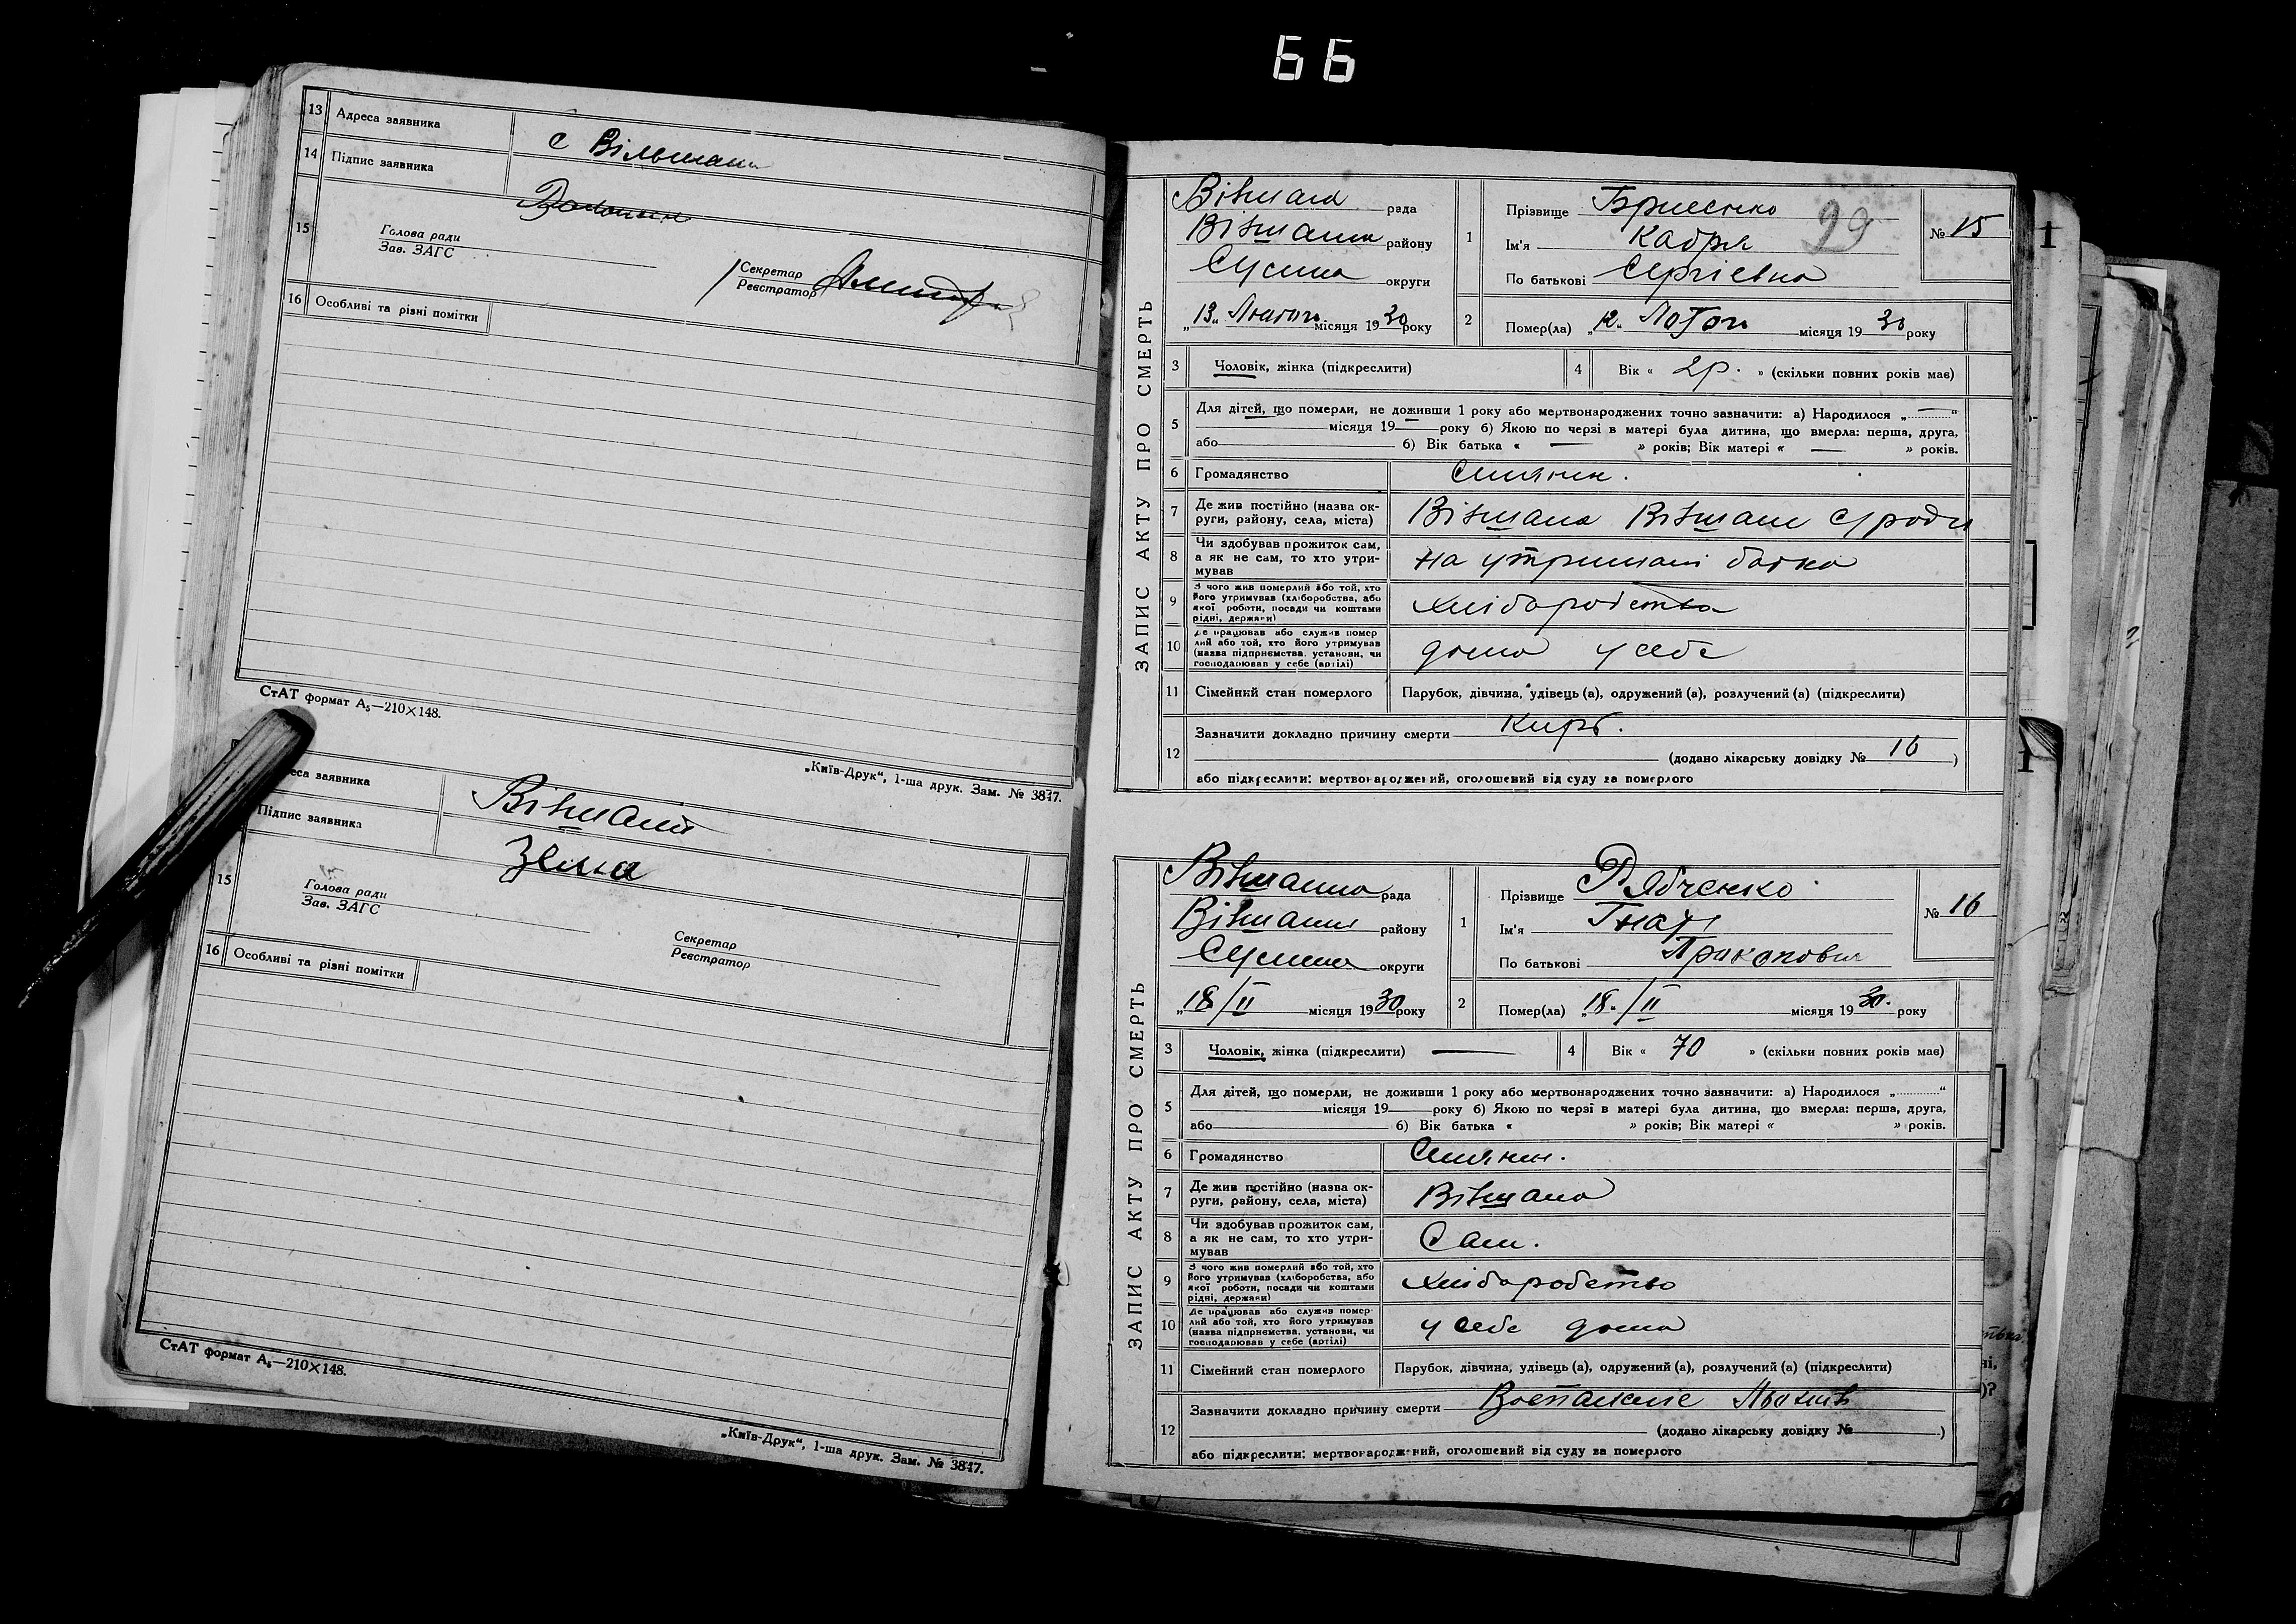 66
13 Адреса заявника с Вільшана
14 Підпис заявника
15 Голова ради
Зав. ЗАГС
Секретар
Реєстратор
16 Особливі та різні помітки
СтАТ формат А₅—210×148.
„Київ-Друк“, 1-ша друк. Зам. № 3847.
еса заявника
Підпис заявника
15 Голова ради
Зав. ЗАГС
Секретар
Реєстратор
16 Особливі та різні помітки
СтАТ формат А₅—210×148.
„Київ-Друк“, 1-ша друк. Зам. № 3847.
ЗАПИС АКТУ ПРО СМЕРТЬ
рада
району
округи
„13“ місяця 1930 року
1 Прізвище
99
Ім'я
По батькові Сергієвна
№ 15
2 Помер(ла) „12“ місяця 1930 року
3 Чоловік, жінка (підкреслити)
4 Вік « 2р. » (скільки повних років має)
5 Для дітей, що померли, не доживши 1 року або мертвонароджених точно зазначити: а) Народилося „ — “
місяця 19 — року б) Якою по черзі в матері була дитина, що вмерла: перша, друга,
або б) Вік батька « — » років; Вік матері « — » років.
6 Громадянство
7 Де жив постійно (назва ок-
руги, району, села, міста)
8 Чи здобував прожиток сам,
а як не сам, то хто утри-
мував
на утримані батка
9 З чого жив померлий або той, хто
його утримував (хліборобства, або
якої роботи, посади чи коштами
рідні, держави)
хліборобства
10 Де працював або служив помер
лий або той, хто його утримував
(назва підприємства, установи, чи
господарював у себе (артілі)
дома у себе
11 Сімейний стан померлого Парубок, дівчина, удівець (а), одружений (а), розлучений (а) (підкреслити)
12 Зазначити докладно причину смерти
(додано лікарську довідку № 16)
або підкреслити: мертвонароджений, оголошений від суду за померлого
ЗАПИС АКТУ ПРО СМЕРТЬ
рада
району
округи
„18/II місяця 1930 року
1 Прізвище Рябченко
Ім'я Гнат
По батькові Пракопович
№ 16
2 Помер(ла) „18“/II місяця 1930. року
3 Чоловік, жінка (підкреслити) —
4 Вік « 70 » (скільки повних років має)
5 Для дітей, що померли, не доживши 1 року або мертвонароджених точно зазначити: а) Народилося „ “
місяця 19 року б) Якою по черзі в матері була дитина, що вмерла: перша, друга,
або б) Вік батька « » років; Вік матері « » років.
6 Громадянство
7 Де жив постійно (назва ок-
руги, району, села, міста)
8 Чи здобував прожиток сам,
а як не сам, то хто утри-
мував
Сам.
9 З чого жив померлий або той, хто
його утримував (хліборобства, або
якої роботи, посади чи коштами
рідні, держави)
хліборобство
10 Де працював або служив помер-
лий або той, хто його утримував
(назва підприємства, установи, чи
господарював у себе (артілі)
у себе дома
11 Сімейний стан померлого Парубок, дівчина, удівець (а), одружений (а), розлучений (а) (підкреслити)
12 Зазначити докладно причину смерти
(додано лікарську довідку № )
або підкреслити: мертвонароджений, оголошений від суду за померлого